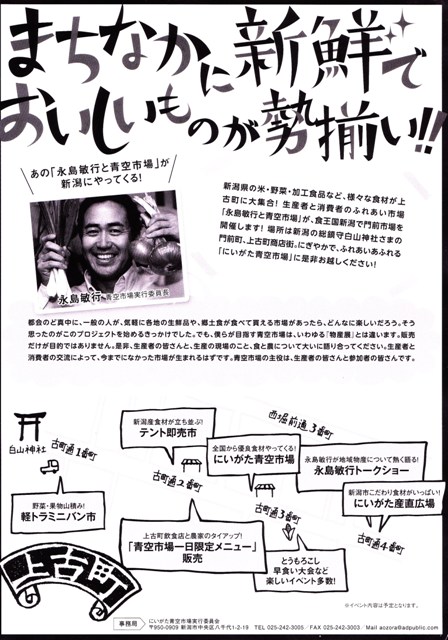 まちなかに新鮮で
おいしいものが勢揃い!!
あの「永島敏行と青空市場」が
新潟にやってくる!
永島敏行 青空市場実行委員長
新潟県の米・野菜・加工食品など、様々な食材が上
古町に大集合! 生産者と消費者のふれあい市場
「永島敏行と青空市場」が、食王国新潟で門前市場を
開催します! 場所は新潟の総鎮守白山神社さまの
門前町、上古町商店街。にぎやかで、ふれあいあふれる
「にいがた青空市場」に是非お越しください!
都会のど真中に、一般の人が、気軽に各地の生鮮品や、郷土食が食べて買える市場があったら、どんなに楽しいだろう。そう
思ったのがこのプロジェクトを始めるきっかけでした。でも、僕らが目指す青空市場は、いわゆる「物産展」とは違います。販売
だけが目的ではありません。是非、生産者の皆さんと、生産の現場のこと、食と農について大いに語り合ってください。生産者と
消費者の交流によって、今までになかった市場が生まれるはずです。青空市場の主役は、生産者の皆さんと参加者の皆さんです。
白山神社
古町通1番町
野菜・果物山積み!
軽トラミニバン市
新潟産食材が立ち並ぶ!
テント即売市
古町通2番町
西堀前通3番町
全国から優良食材やってくる!
にいがた青空市場
永島敏行が地域物産について熱く語る!
永島敏行トークショー
古町通3番町
新潟市こだわり食材がいっぱい!
にいがた産直広場
古町通4番町
上古町飲食店と農家のタイアップ!
「青空市場一日限定メニュー」
販売
とうもろこし
早食い大会など
楽しいイベント多数!
上古町
※イベント内容は予定となります。
事務局
にいがた青空市場実行委員会
〒950-0909 新潟市中央区八千代1-2-19 TEL 025-242-3005/FAX 025-242-3003/Mail aozora@adpublic.com